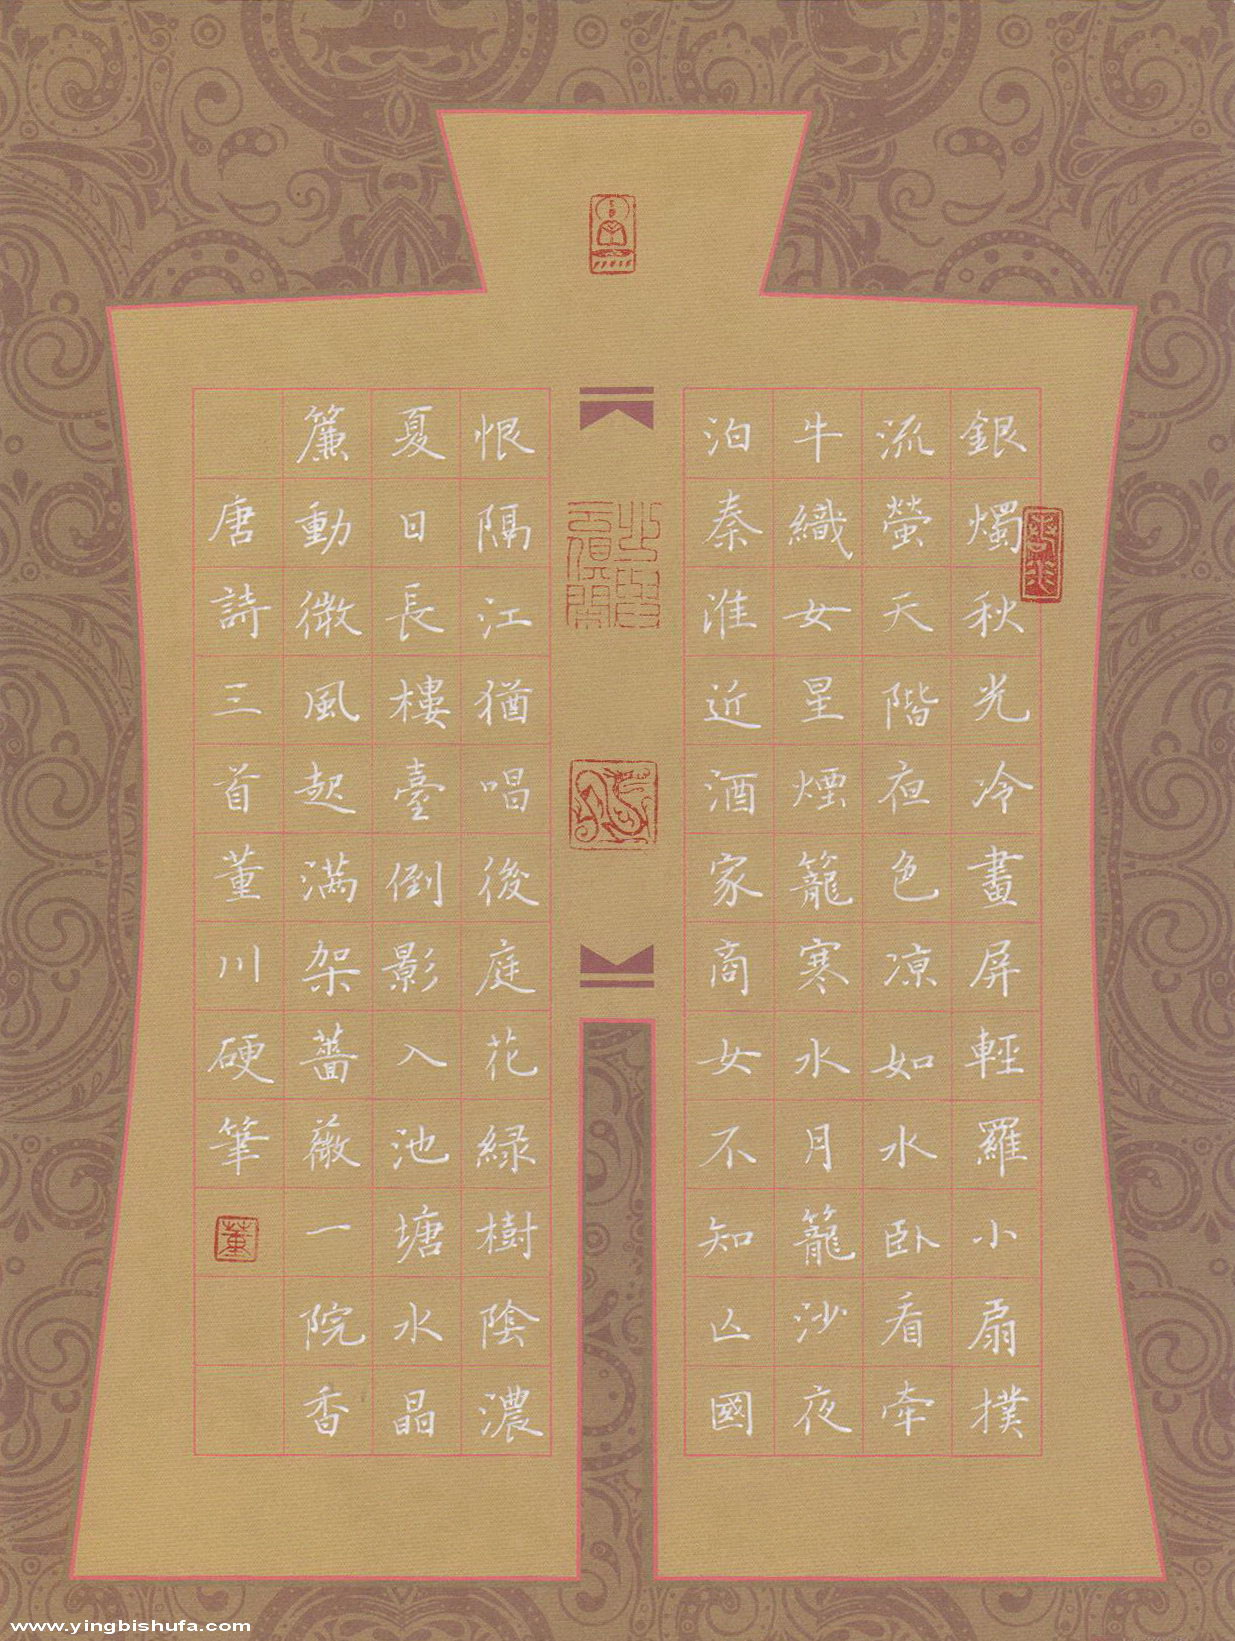 銀燭秋光冷畫屏輕羅小扇撲
流螢天階夜色涼如水臥看牽
牛織女星煙籠寒水月籠沙夜
泊秦淮近酒家商女不知亡國
恨隔江猶唱後庭花緑樹陰濃
夏日長樓臺倒影入池塘水晶
簾動微風起滿架薔薇一院香
唐詩三首董川硬筆
董
www.yingbishufa.com